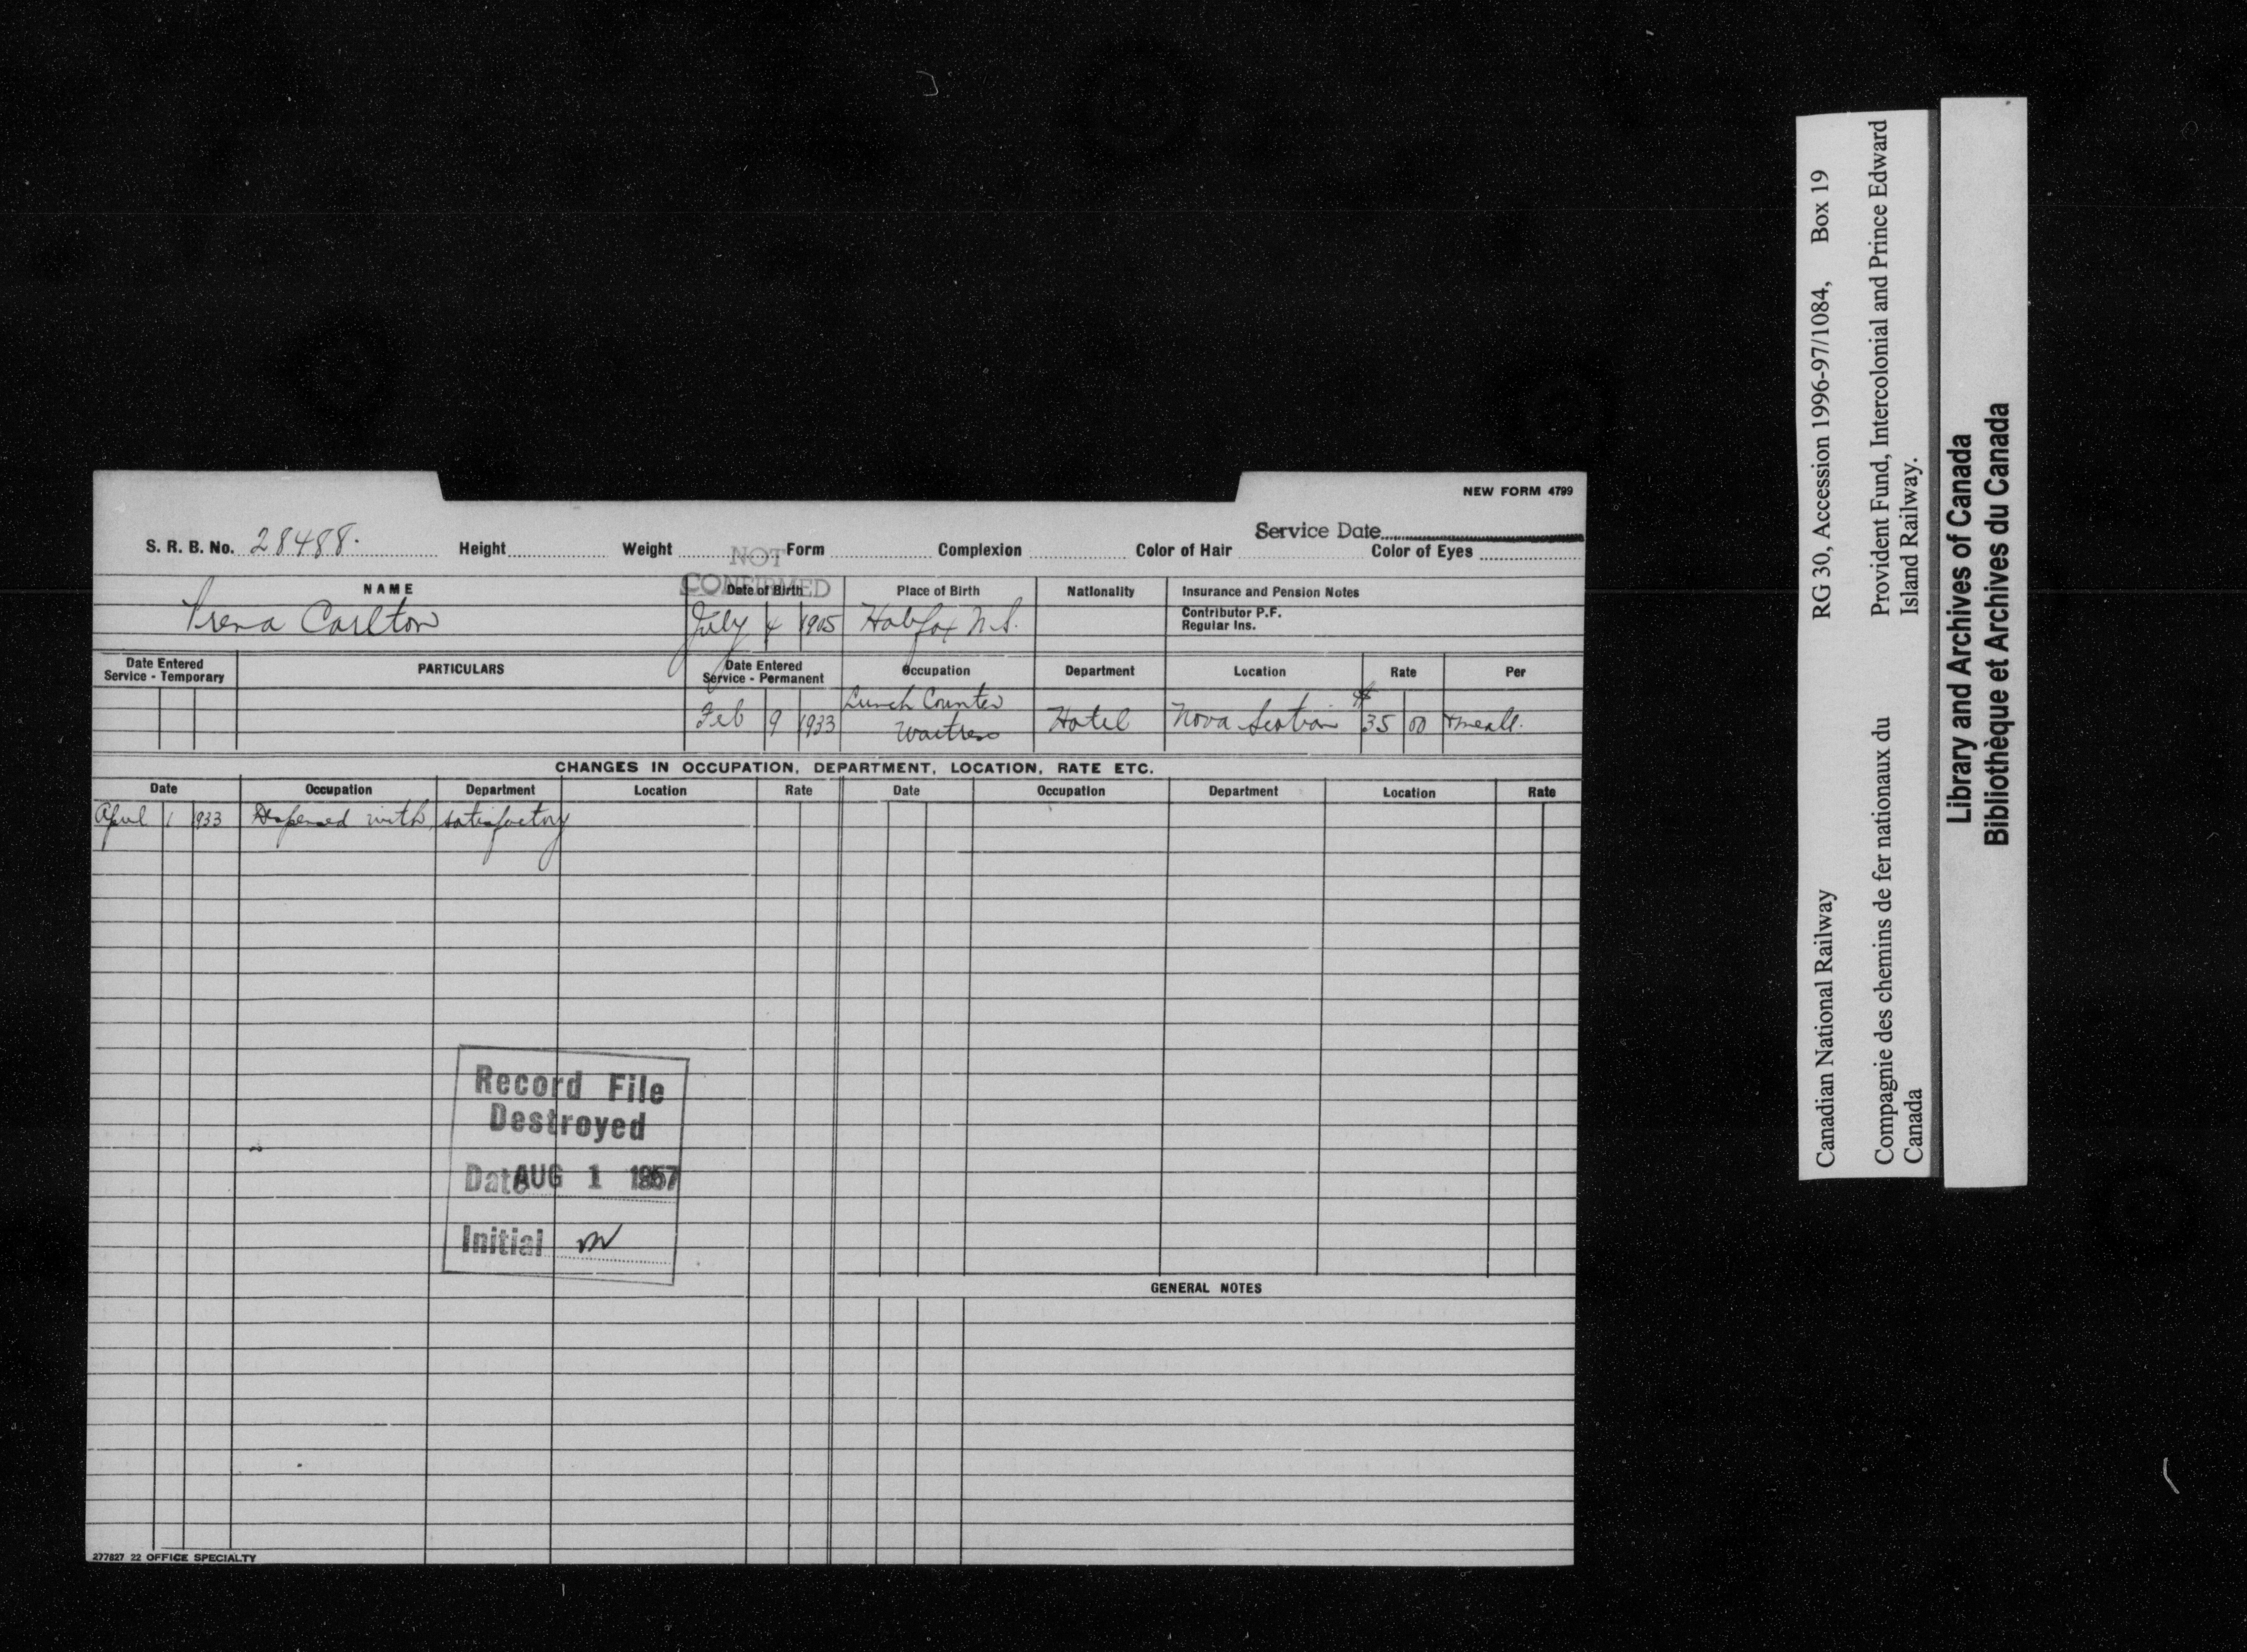 NEW FORM 4799
Service Date
S. R. B. No. 28488. Height Weight Form Complexion Color of Hair Color of Eyes
NOT
CONFIRMED
NAME Date of Birth Place of Birth Nationality Insurance and Pension Notes
Irena Carlton July 4 1905 Halifax N.S. Contributor P.F.
Regular Ins.
Date Entered Service - Temporary PARTICULARS Date Entered Service - Permanent Occupation Department Location Rate Per
Feb 9 1933 Lunch Counter Waitress Hotel Nova Scotian $35 00 & meals.
CHANGES IN OCCUPATION, DEPARTMENT, LOCATION, RATE ETC.
Date Occupation Department Location Rate Date Occupation Department Location Rate
April 1 1933 Dispensed with, satisfactory
Record File
Destroyed
Date AUG 1 1957
Initial
GENERAL NOTES
277827 22 OFFICE SPECIALTY
Canadian National Railway RG 30, Accession 1996-97/1084, Box 19
Compagnie des chemins de fer nationaux du Canada
Provident Fund, Intercolonial and Prince Edward Island Railway.
Library and Archives of Canada
Bibliothèque et Archives du Canada